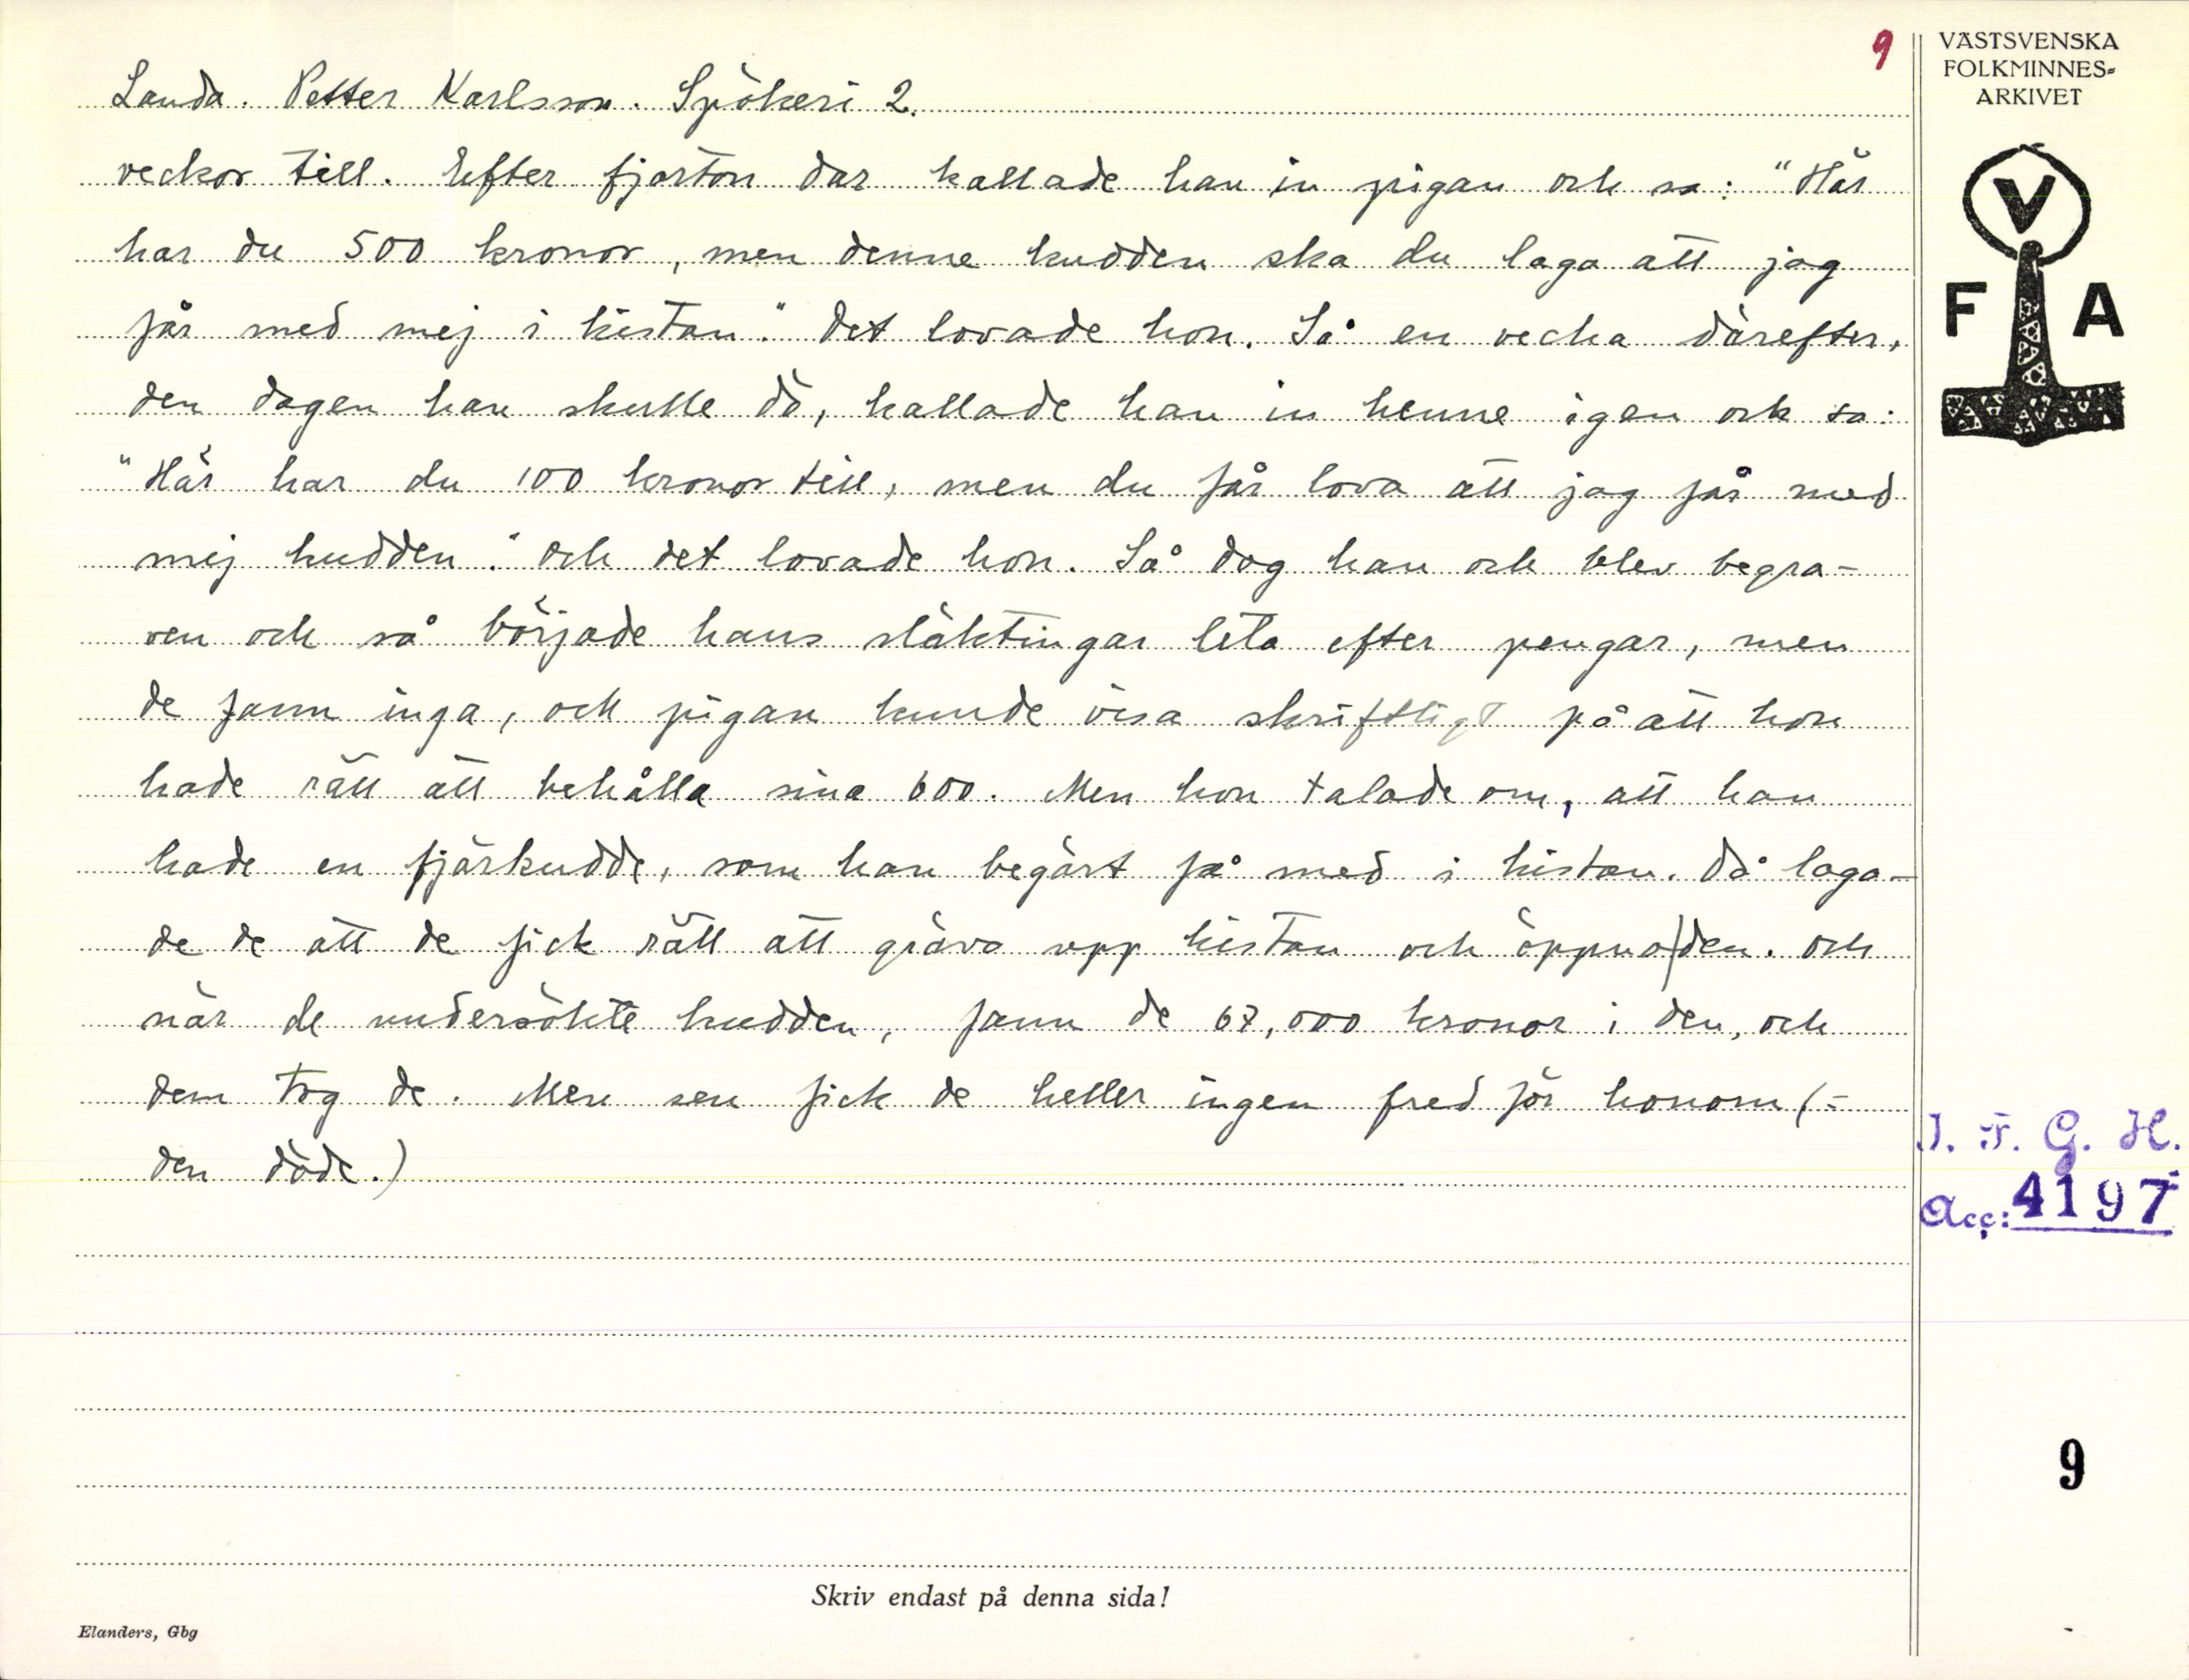 9
VÄSTSVENSKA
FOLKMINNES-
ARKIVET
V
F A
Landa. Petter Karlsson. Spökeri 2.
veckor till. Efter fjorton dar kallade han in pigan och sa: "Här
har du 500 kronor, men denne kudden ska du laga att jag
får med mej i kistan." Det lovade hon. Så en vecka därefter,
den dagen han skulle dö, kallade han in henne igen och sa:
"Här har du 100 kronor till, men du får lova att jag får med
mej kudden." Och det lovade hon. Så dog han och blev begra-
ven och så började hans släktingar leta efter pengar, men
de fann inga, och pigan kunde visa skriftligt på att hon
hade rätt att behålla sina 600. Men hon talade om, att han
hade en fjärkudde, som han begärt få med i kistan. Då laga-
de de att de fick rätt att gräva upp kistan och öppna den. Och
när de undersökte kudden, fann de 67,000 kronor i den, och
dem tog de. Men sen fick de heller ingen fred för honom (=
den döde.)
I. F. G. H.
Acc: 4197
9
Skriv endast på denna sida!
Elanders, Gbg